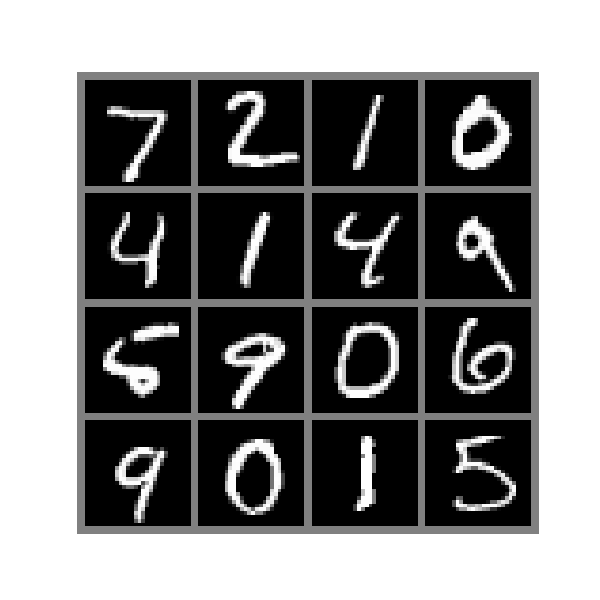 7 2 1 0
4 1 4 9
5 9 0 6
9 0 1 5